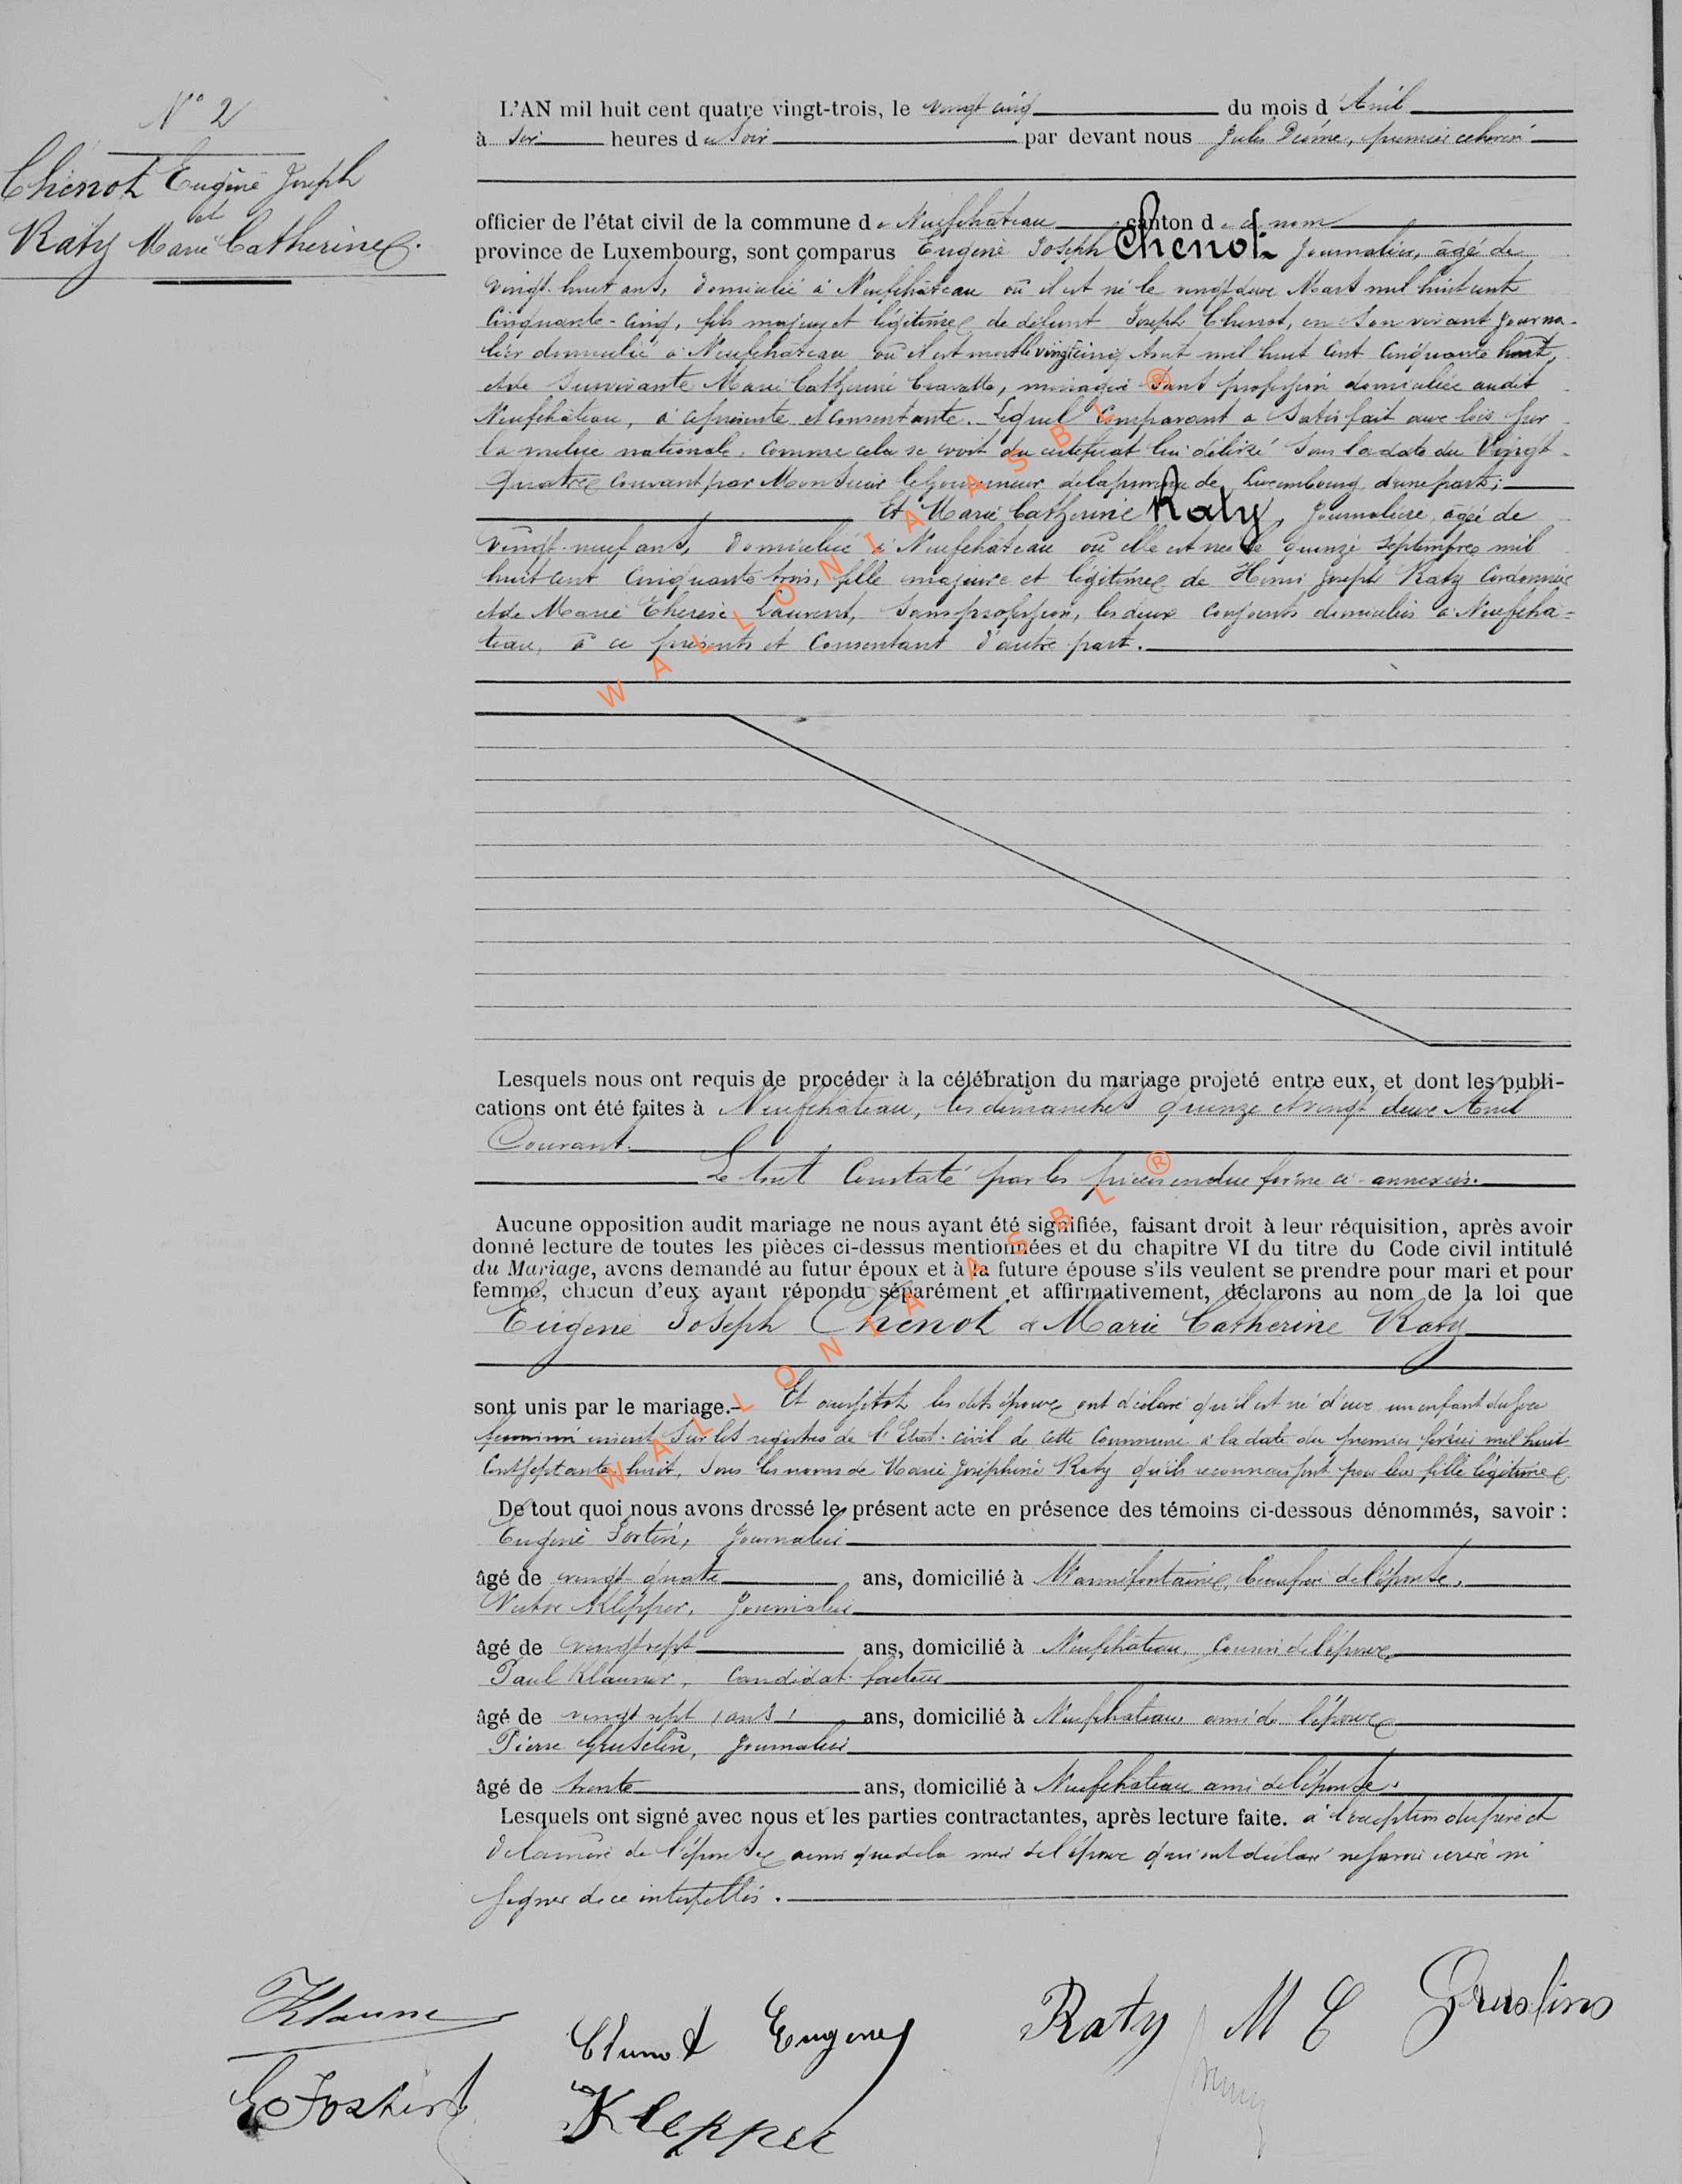 N° 2
Chenot Eugène Joseph
et
Raty Marie Catherine.
L'AN mil huit cent quatre vingt-trois, le vingt cinq du mois d'Avril
à six heures du Soir par devant nous Jules premier échevin
officier de l'état civil de la commune de Neufchâteau canton de ce nom
province de Luxembourg, sont comparus Eugène Joseph Chenot, Journalier, âgé de
vingt-huit ans, domicilié à Neufchâteau où il est né le vingt deux Mars mil huit cent
cinquante-cinq, fils majeur et légitime de défunt Joseph Chenot, en son vivant journa-
lier domicilié à Neufchâteau où il est mort le vingt cinq Août mil huit cent cinquante huit,
et de survivante Marie Catherine ménagère sans profession domiciliée audit
Neufchâteau, à ce présente et consentante. Lequel comparant a satisfait aux lois sur
la milice nationale, comme cela se voit du certificat lui délivré sous la date du Vingt-
quatre courant par Monsieur le Gouverneur de la province de Luxembourg d'une part;
Et Marie Catherine Raty, Journalière, âgée de
vingt-neuf ans, domiciliée à Neufchâteau où elle est née le quinze septembre mil
huit cent cinquante trois, fille majeure et légitime de Henri Joseph Raty Cordonnier
et de Marie Thérèse Laurent, sans profession, les deux conjoints domiciliés à Neufchâ-
teau, à ce présents et consentant d'autre part.
Lesquels nous ont requis de procéder à la célébration du mariage projeté entre eux, et dont les publi-
cations ont été faites à Neufchâteau, les dimanches quinze et vingt deux Avril
Courant.
Le tout constaté par les pièces en due forme ci-annexées.
Aucune opposition audit mariage ne nous ayant été signifiée, faisant droit à leur réquisition, après avoir
donné lecture de toutes les pièces ci-dessus mentionnées et du chapitre VI du titre du Code civil intitulé
du Mariage, avons demandé au futur époux et à la future épouse s'ils veulent se prendre pour mari et pour
femme, chacun d'eux ayant répondu séparément et affirmativement, déclarons au nom de la loi que
Eugène Joseph Chenot & Marie Catherine Raty
sont unis par le mariage.- Et aussitôt les dits époux ont déclaré qu'il est né d'eux un enfant du sexe
féminin inscrit sur les registres de l'Etat-civil de cette Commune à la date du premier février mil huit
cent septante huit, sous les noms de Marie Joséphine Raty qu'ils reconnaissent pour leur fille légitime
De tout quoi nous avons dressé le présent acte en présence des témoins ci-dessous dénommés, savoir :
Eugène Journalier
âgé de vingt quatre ans, domicilié à Warmifontaine, beaufrère de l'épouse,
Victor Klepper, Journalier
âgé de vingt sept ans, domicilié à Neufchâteau, Cousin de l'époux,
Paul Klauner, candidat-facteur
âgé de vingt sept (ans) ans, domicilié à Neufchâteau ami de l'époux
Pierre Gruselin, Journalier
âgé de trente ans, domicilié à Neufchâteau ami de l'épouse.
Lesquels ont signé avec nous et les parties contractantes, après lecture faite. à l'exception du père et
de la mère de l'épouse ainsi que de la mère de l'époux qui ont déclaré ne savoir écrire ni
signer de ce interpellés.
Raty M C
Chenot Eugène
Klepper
WALLONIA ASBL ®
WALLONIA ASBL ®